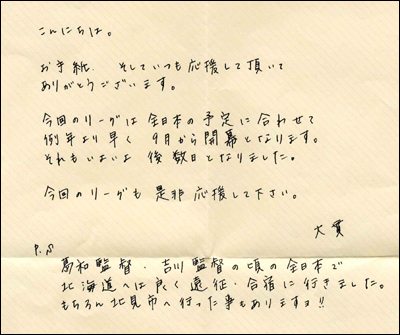 こんにちは。
お手紙、そしていつも応援して頂いて
ありがとうございます。
今回のリーグは全日本の予定に合わせて
例年より早く 9月から開幕となります。
それもいよいよ 後数日となりました。
今回のリーグも 是非 応援して下さい。
大貫
P.S
葛和監督・吉川監督の頃の全日本で
北海道へは良く遠征・合宿に行きました。
もちろん北見市へ行った事もありますョ!!